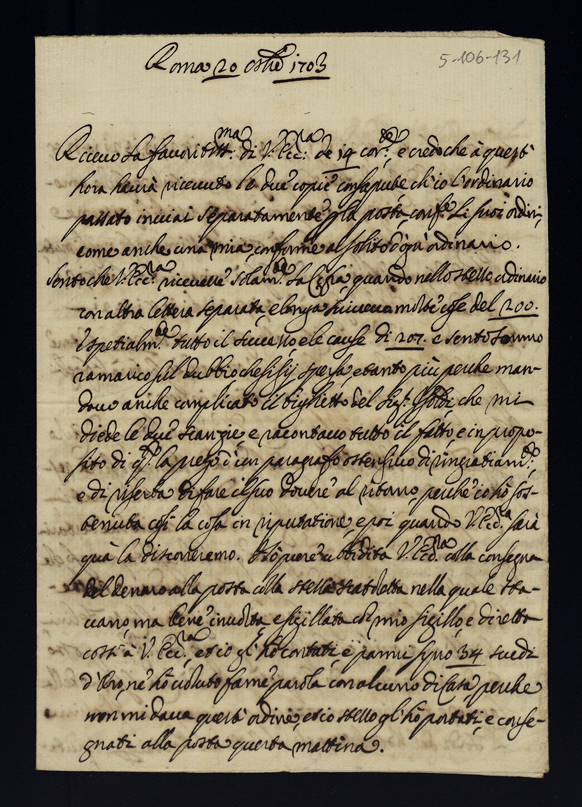 5-106-131
Roma 20 Ott.re 1703
Ricevo la favoritiss.ma di V. Ecc.za de 14 cor.te e credo che à quest'
hora havrà ricevuto le due copie consapute ch'io l'ordinario
passato inviai separatamente p la posta conf.e li suoi ordini,
come anche una mia conforme al solito ogni ordinario.
Sento che V. Ecc.za ricevette solam.te la quando nello stesso ordinario
con altra lettera separata, e longa scrivevo molte cose del 200.
e spetialm.te tutto il successo e le cause di 207. e sento sommo
ramarico sul dubbio che si sij spersa, e tanto più perche man-
davo anche complicato il biglietto del Sig.r che mi
diede le due stanzie, e racontavo tutto il fatto, e in propo-
sito di q.to la pregò d'un paragrafo ostensivo di ringratiam.to
e di riserva di fare il suo dovere al ritorno, perche io hò sos-
tenuta così la cosa in riputatione, e poi quando V. Ecc.za sarà
quà la discorreremo. Hò pure ubbidita V. Ecc.za alla consegna
del denaro alla posta colla stessa scatoletta nella quale sta-
vano, ma bene involta, e sigillata col mio sigillo, e diretta
costì à V. Ecc.za, et io gl'hò contati, e sono 34 scudi
d'oro, ne hò voluto farne parola con alcuno di Casa perche
non mi dava quest'ordine, et io stesso gl'hò portati, e conse-
gnati alla posta questa mattina.